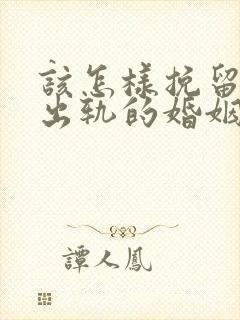 該怎樣挽留
出軌的婚姻
譚人鳳